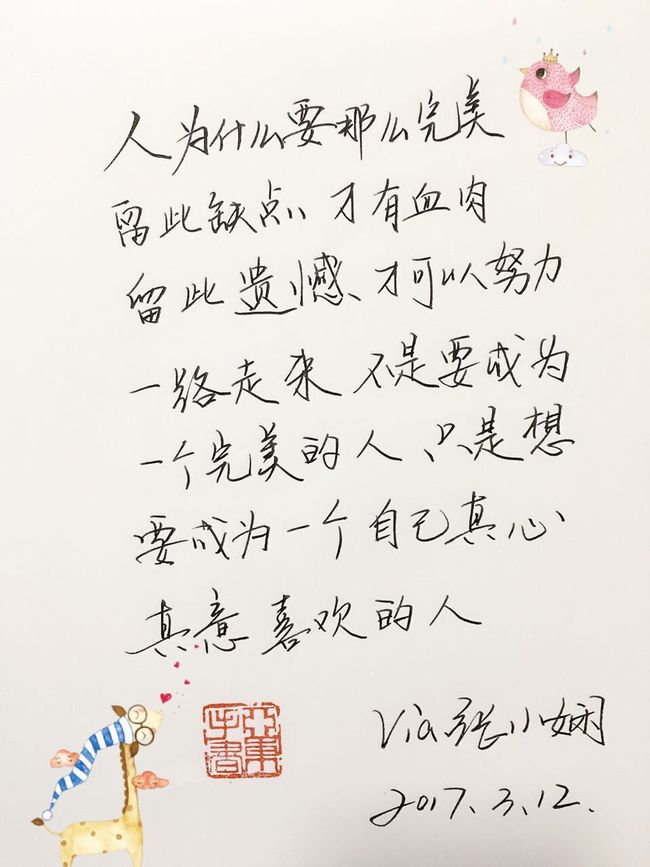 人为什么要那么完美
留此缺点、才有血肉
留此遗憾、才可以努力
一路走来 不是要成为
一个完美的人、只是想
要成为一个自己真心
真意喜欢的人
Via张小娴
2017.3.12.